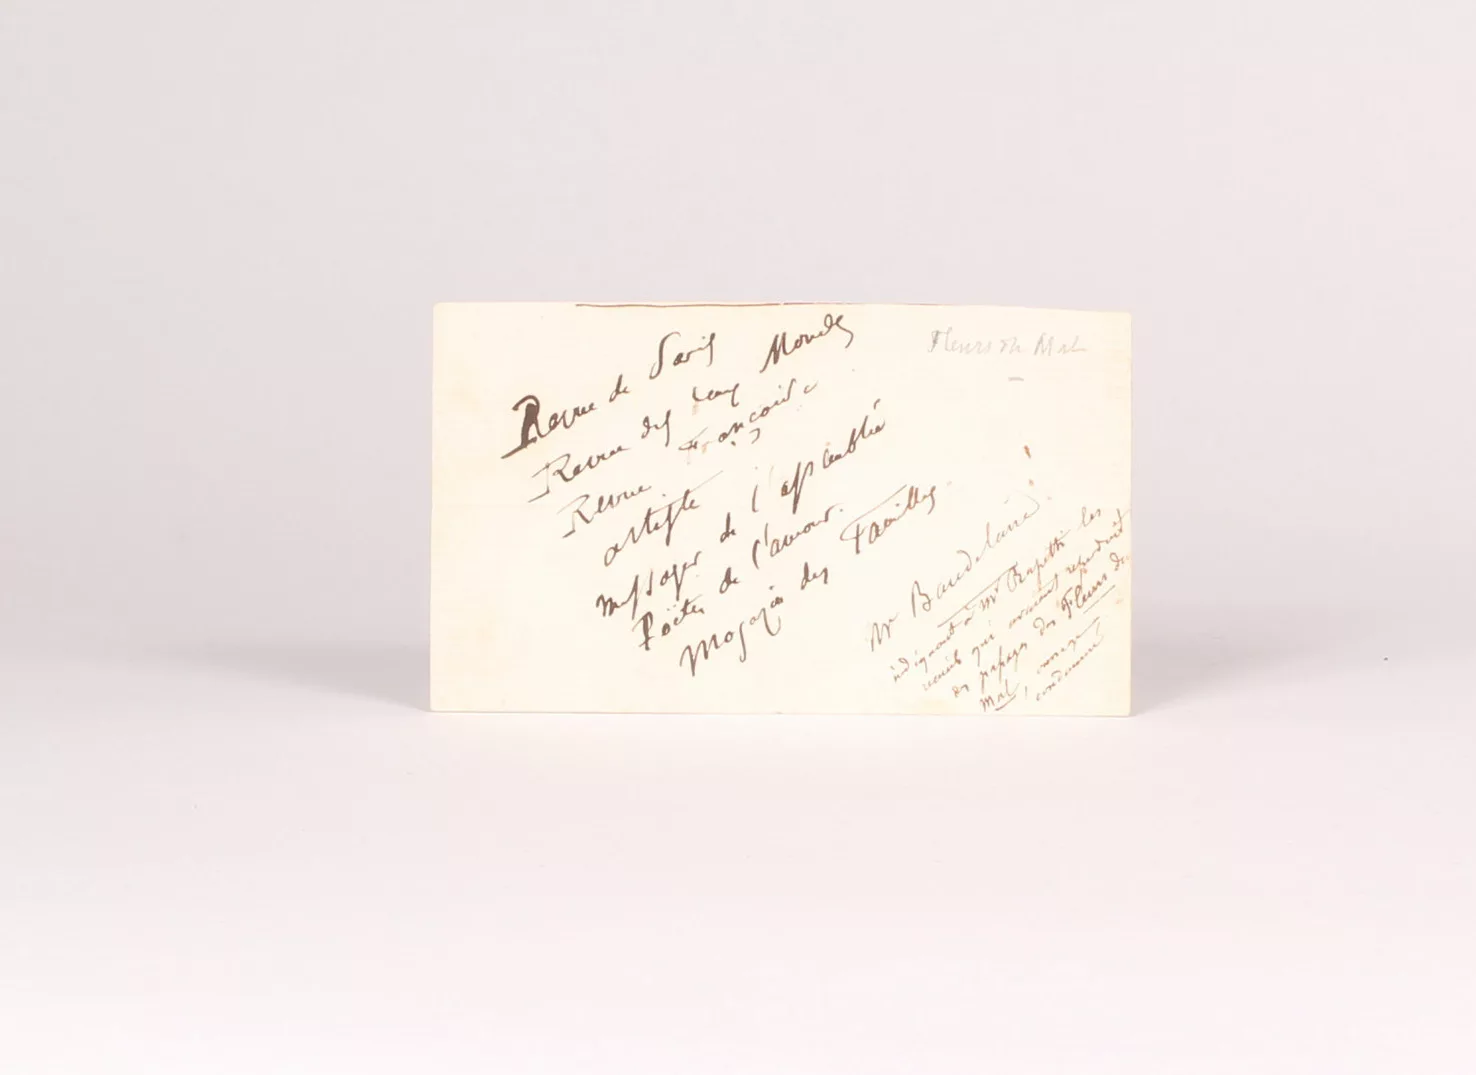 Revue de Paris
Revue des deux Mondes
Revue Françoise
artiste
messager de l'assemblée
Poëtes de l'amour.
Magazin des Familles.
Fleurs du Mal
Mr Baudelaire
indiquant à Mr Rapetti les
recueils qui avaient reproduit
des passages des Fleurs du
Mal,